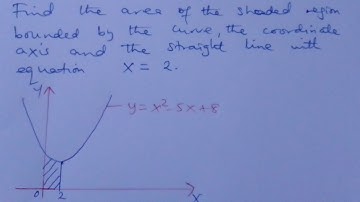 Find the area of the shaded region
bounded by the curve, the coordinate
axis and the straight line with
equation x = 2.
y
y = x² - 5x + 8
0
2
x